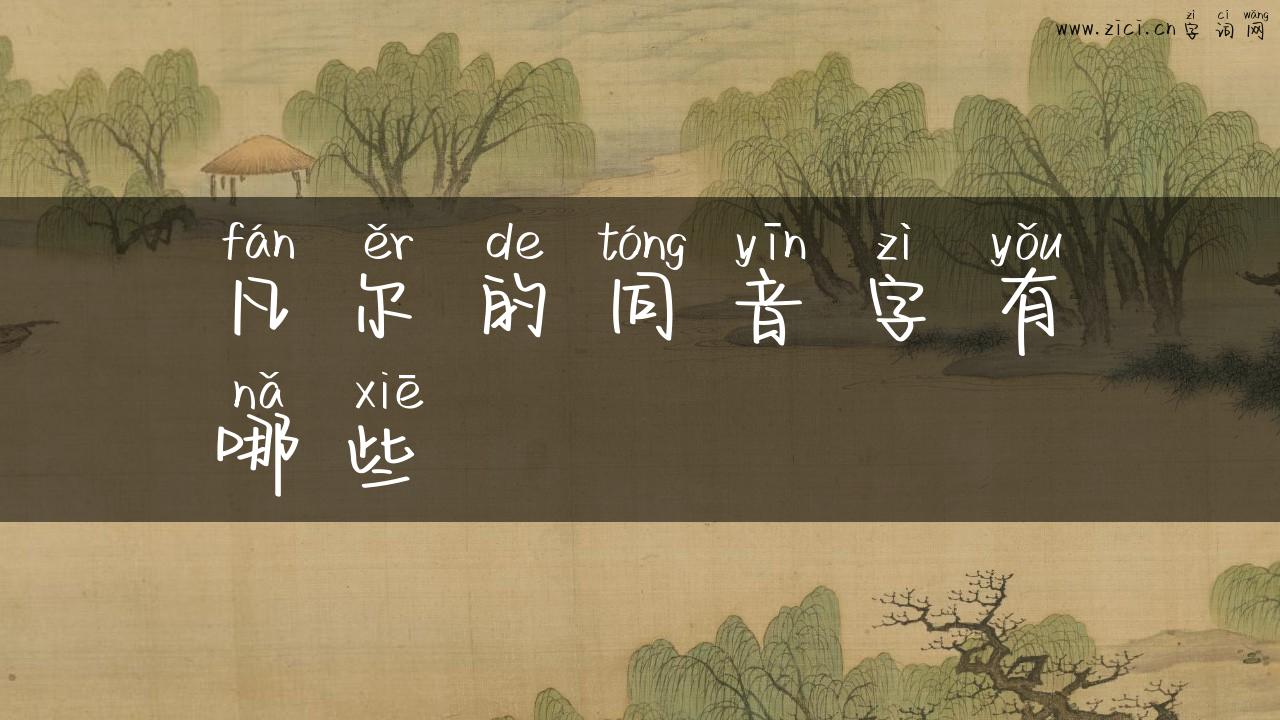 zì cí wǎng
www.zici.cn 字 词 网
fán ěr de tóng yīn zì yǒu
凡 尔 的 同 音 字 有
nǎ xiē
哪 些